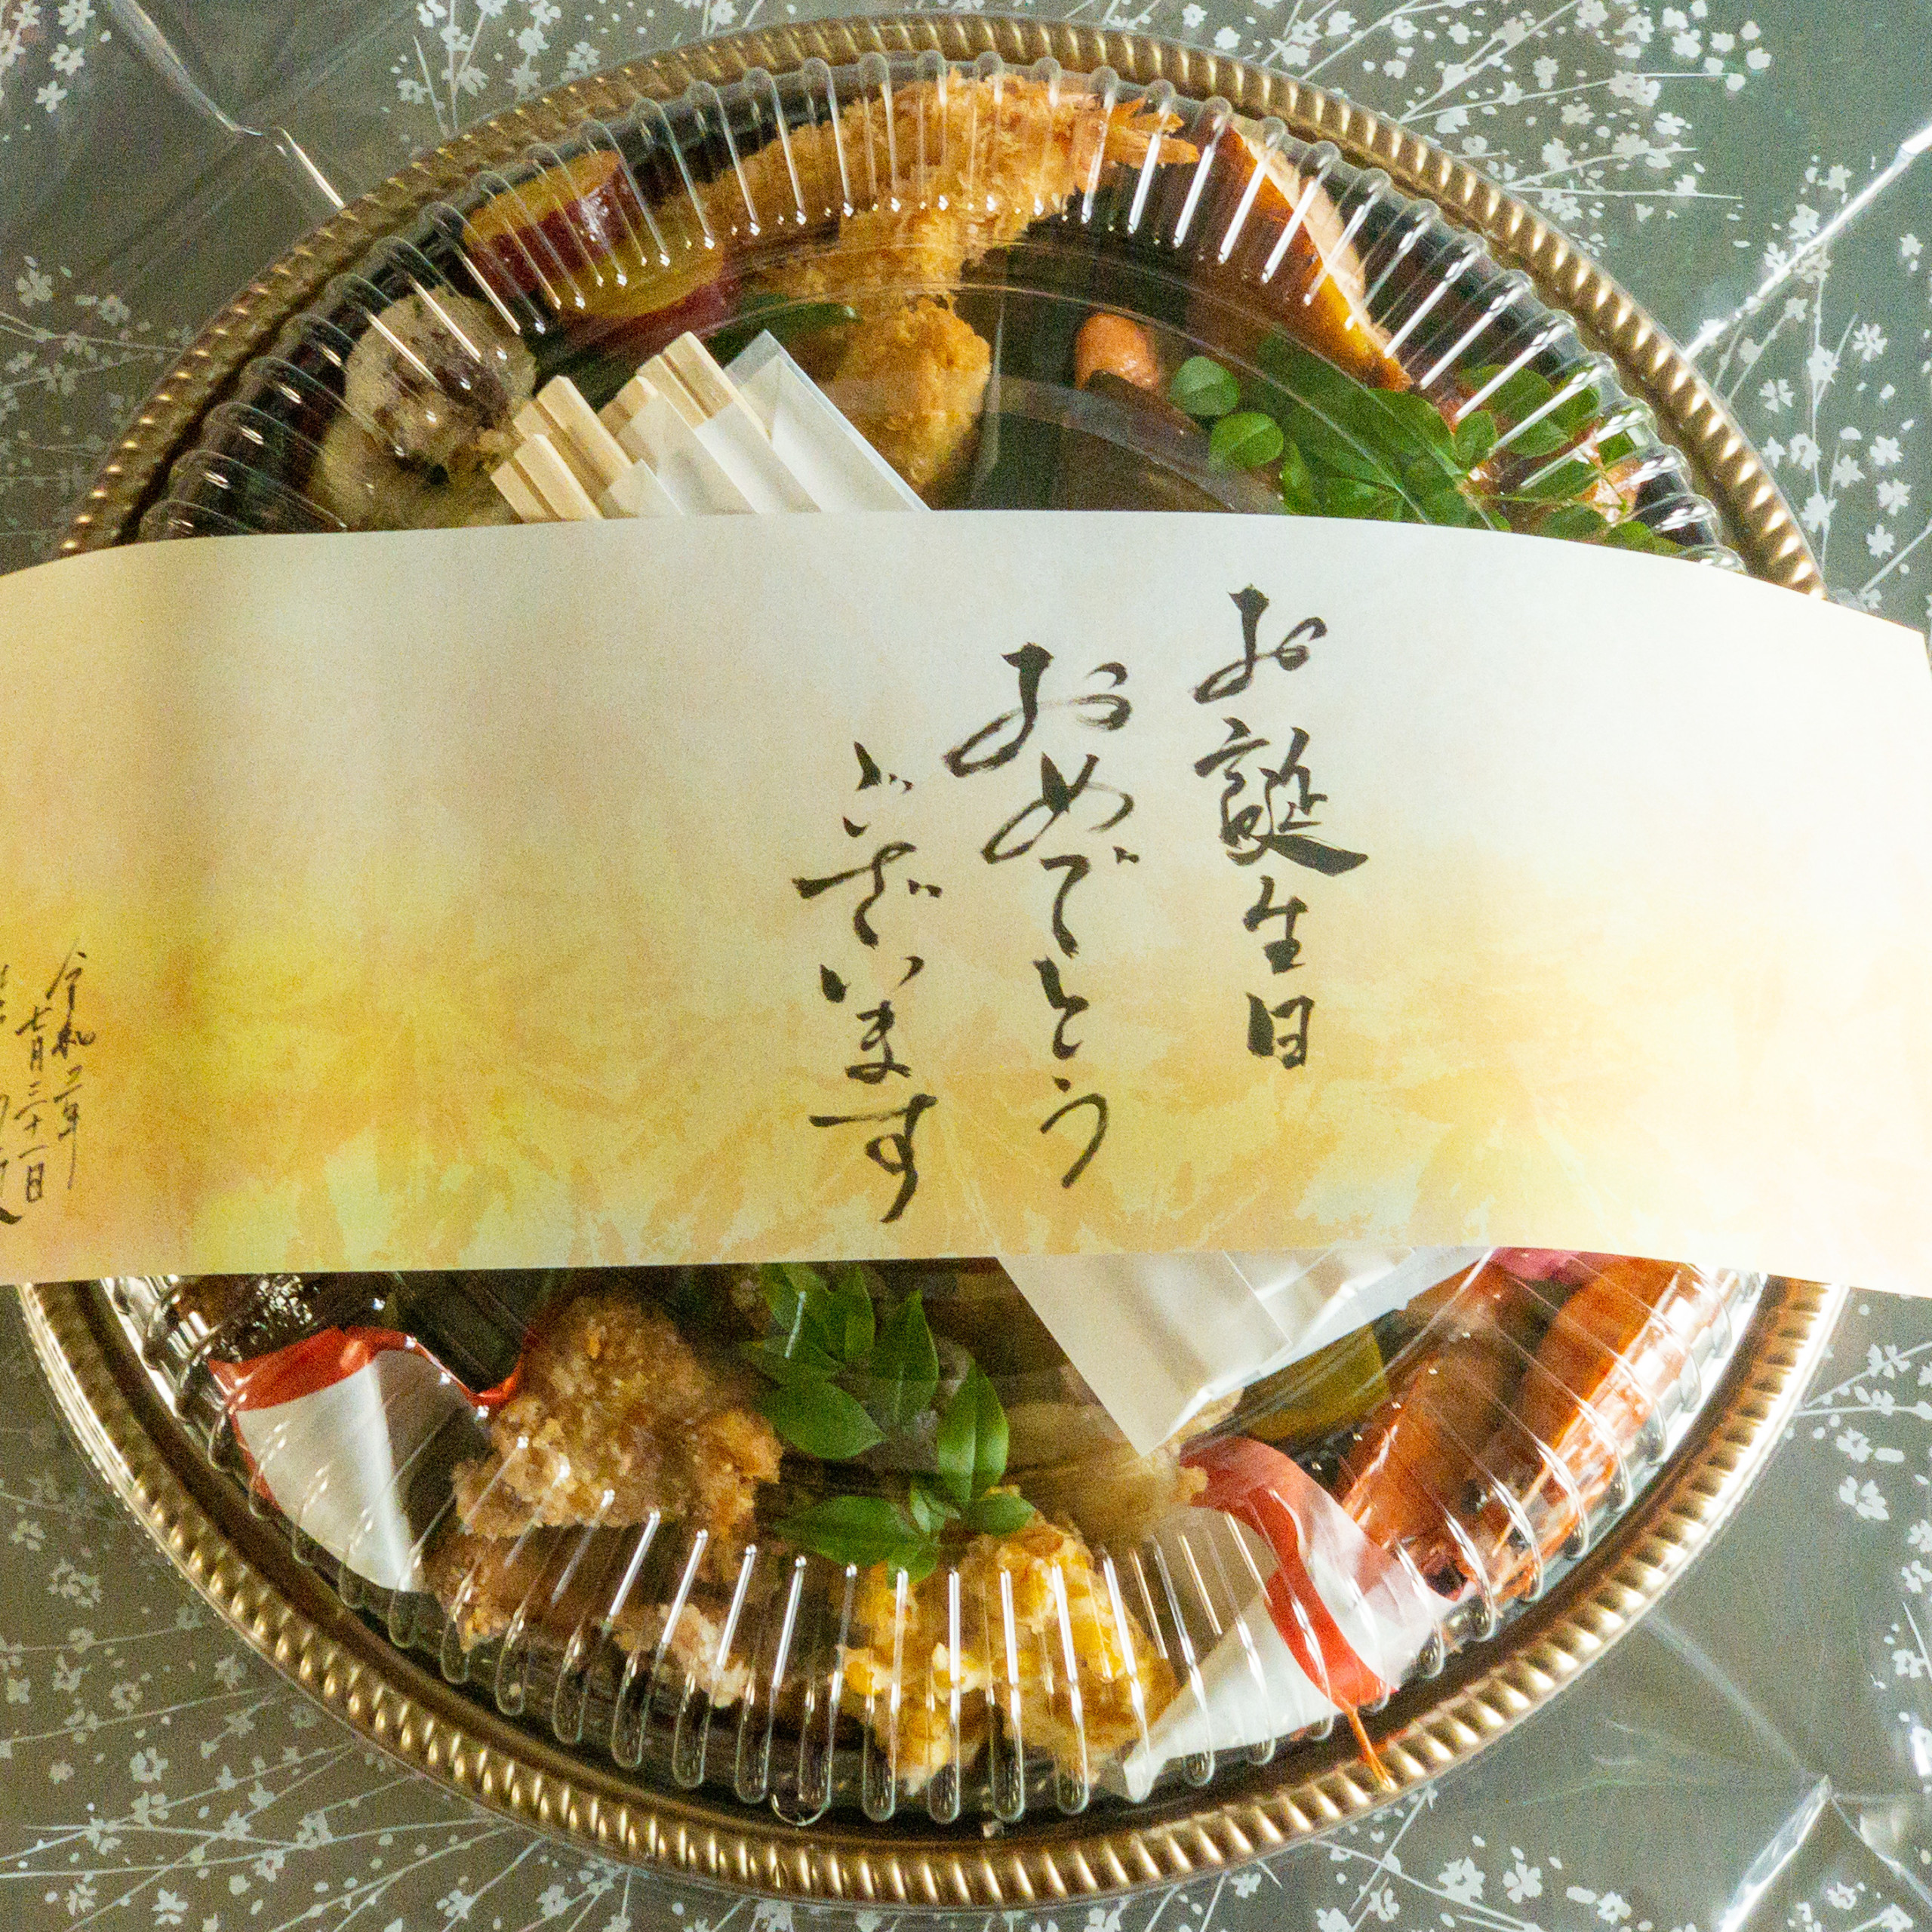 お誕生日
おめでとう
ございます
令和二年
七月三十一日